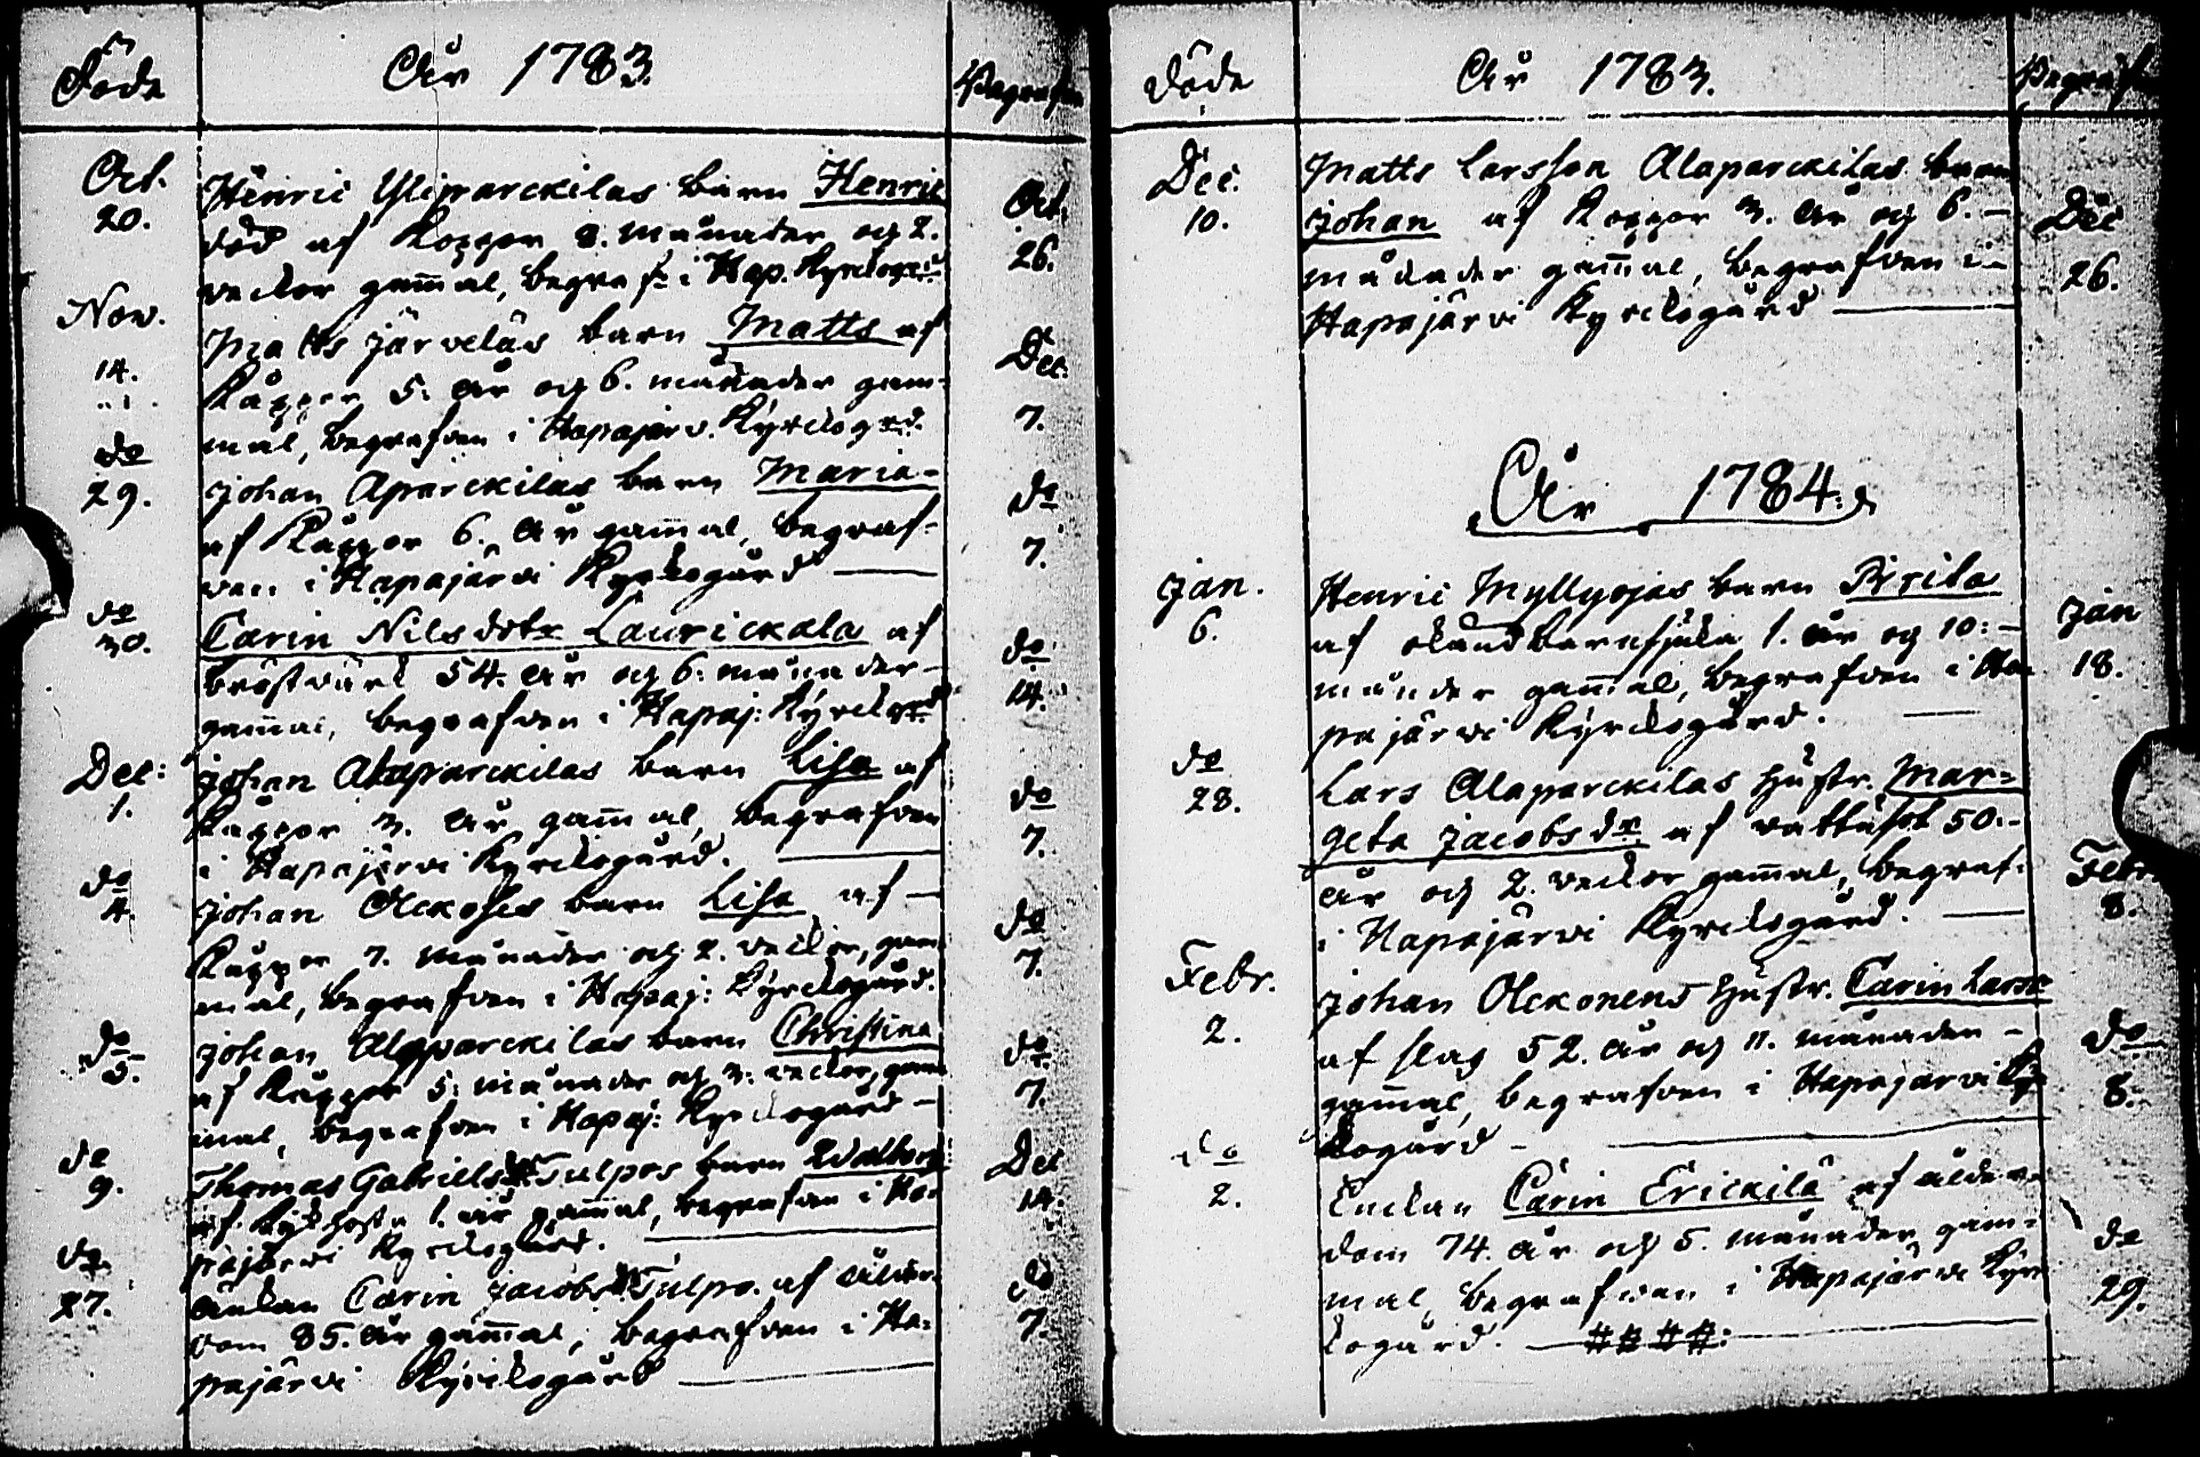 Döde
År 1783.
Begrafne
Oct. 20.
Henric Yliparckilas barn Henric
död af Koppor 8. månader och 2.
veckor gam̄al, begraf: i Hap. Kyrckogrd
Oct. 26.
Nov. 14.
Matts Järveläs barn Matts af
Kåppor 5. år och 6. månader gam-
mal, begrafven i Hapajerv. Kyrckogrd.
Dec. 7.
do 29.
Johan Aparckilas barn Maria-
af Kåppor 6. År gam̄al, begraf-
ven i Hapajärvi Kyrckogård
do 7.
do 30.
Carin Nilsdotr Laurickala af
bröstvärk 54. år och 6. månader-
gam̄al, begrafven i Hapaj: Kyrckogrd
do 14.
Dec: 1.
Johan Alaparckilas barn Lisa af
Kåppor 3. år gam̄al, begrafven
i Hapajärvi Kyrckogård.
do 7.
do 4.
Johan Olckoses barn Lisa af -
Kåppor 7. månader och 2. veckor, gam
mal, begrafven i Hapaj: Kyrckogård.
do 7.
do 5.
Johan Alapparckilas barn Christina
af Kåppor 5: månader och 3: veckor, gam
mal, begrafven i Hapaj: Kyrckogård -
do 7.
do 9.
Thomas Gabriels Tulpos barn Walborg
af Kikhosta 1. år gam̄al, begrafven i Ha-
pajärvi Kyrckogård.
Dec 14.
do 27.
Änkan Carin Jacobsdr Tulpo. af ålder-
dom 85. år gam̄al, begrafven i Ha-
pajärvi Kyrckogård
do 7.
Döde
År 1783.
Begrafne
Dec. 10.
Matts Larsson Alaparckilas barn
Johan af Koppor 3. år och 6. -
månader gam̄al, begrafven i -
Hapajärvi Kyrckogård
Dec 26.
År 1784.
Jan. 6.
Henric Myllyojas barn Brita
af okänd barnsjuka 1. år och 10: -
månader gam̄al, begrafven i Ha
pajärvi Kyrckogård.
Jan 18.
do 28.
Lars Alaparckilas hustr. Mar=
geta Jacobsdr af vattusot 50. -
år och 2. veckor gam̄al, begraf:
i Hapajärvi Kyrckogård.
Febr. 8.
Febr. 2.
Johan Olckonens hustr. Carin Larsdr
af slag 52. år och 11. månader -
gam̄al, begrafven i Hapajärvi Kyr
kogård -
do 8.
do 2.
Enckan Carin Erickilä af ålder-
dom 74. år och 5. månader gam-
mal, begrafven i Hapajärvi Kyr
kogård. - # # # #:
do 29.